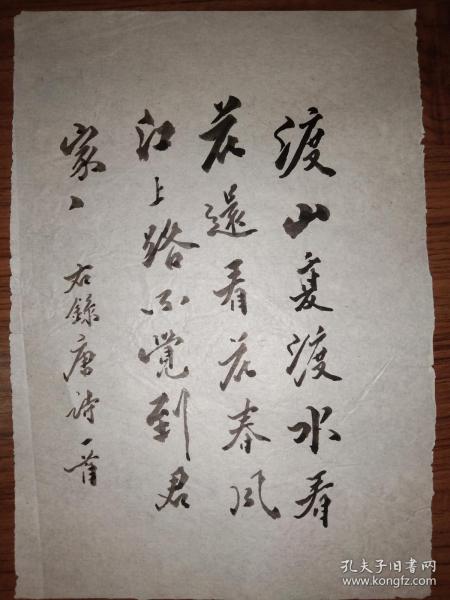 渡山夏渡水看
花還看花春风
江上路不覺到君
家〻
右錄唐詩一首
孔夫子旧书网
www.kongfz.com